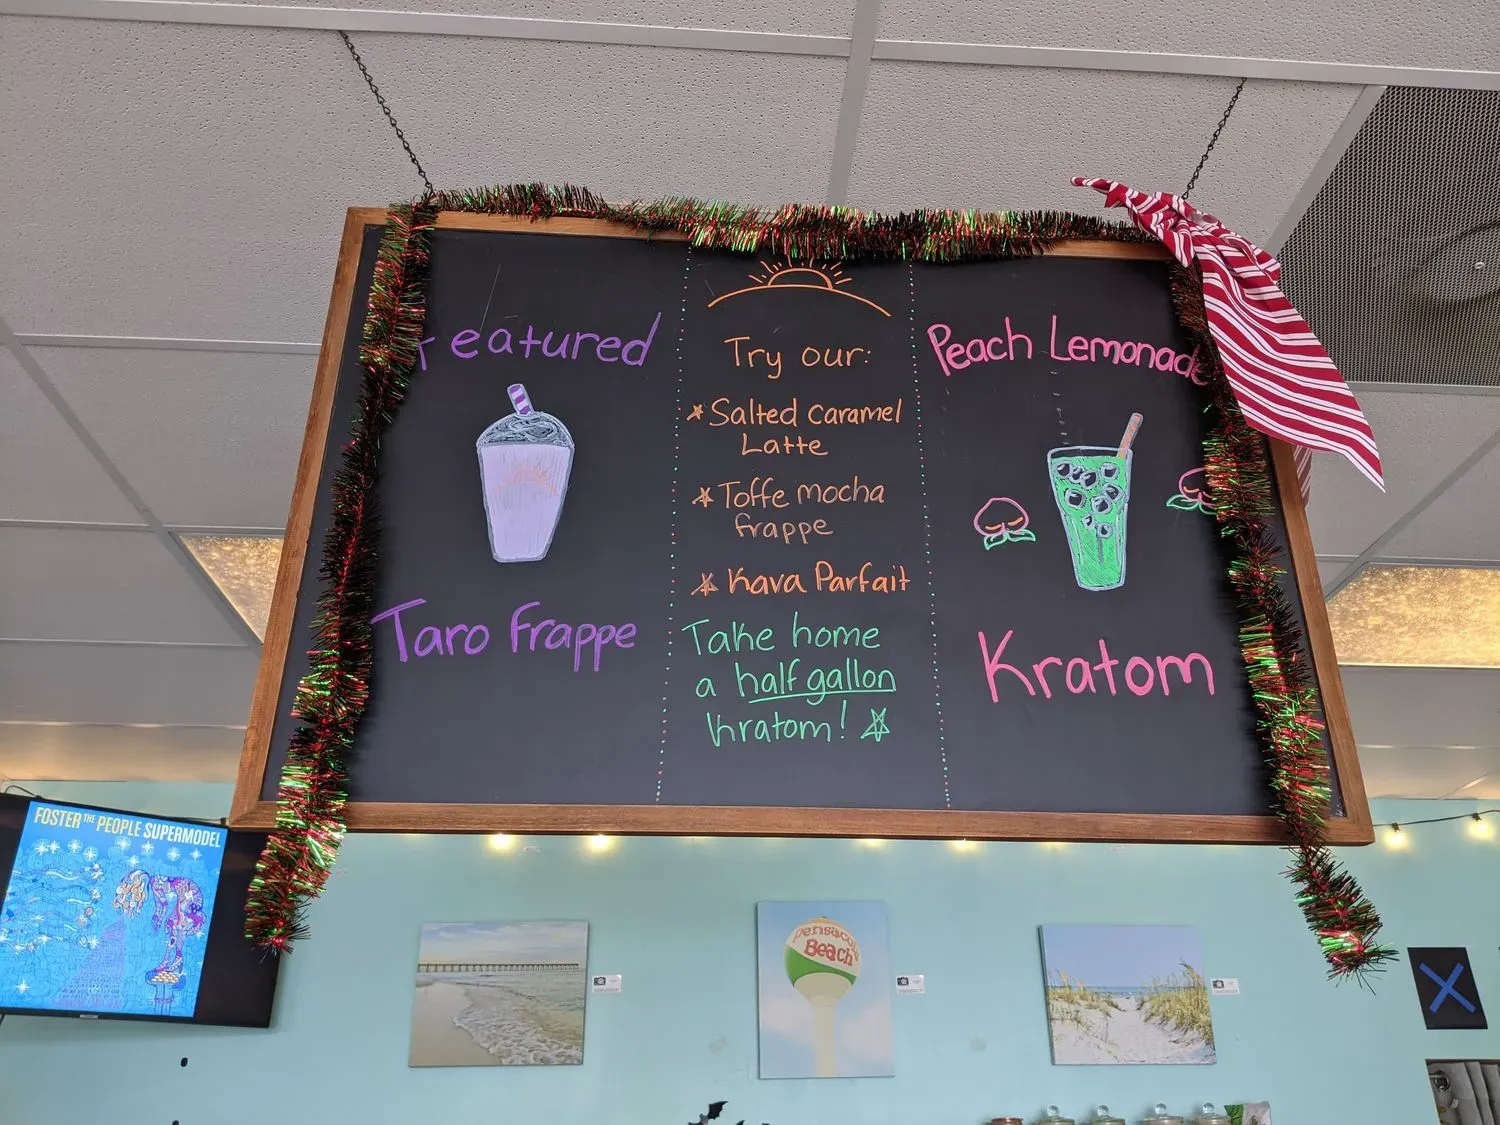 Featured
Taro frappe
Try our:
Salted caramel
Latte
Toffe mocha
frappe
Kava Parfait
Take home
a half gallon
kratom!
Peach Lemonade
Kratom
FOSTER THE PEOPLE SUPERMODEL
Pensacola
Beach